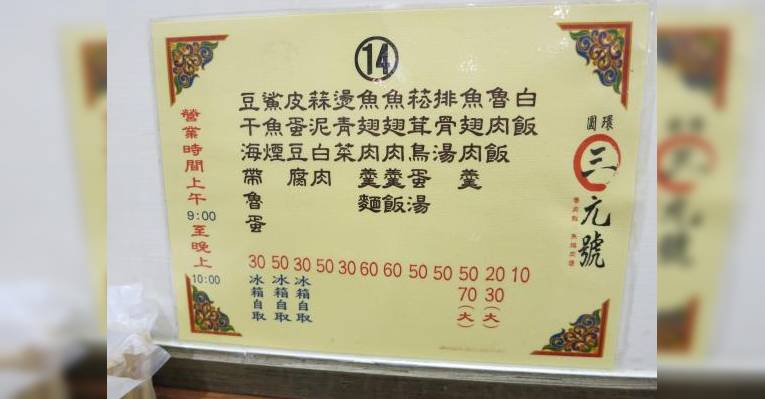 14
圓環
三元號
白飯 10
魯肉飯 20 30(大)
魚翅肉羹 50 70(大)
排骨湯 50
菘茸鳥蛋湯 50
魚翅肉羹飯 60
魚翅肉羹麵 60
燙青菜 30
蒜泥白肉 50
皮蛋豆腐 30 冰箱自取
鯊魚煙 50 冰箱自取
豆干海帶魯蛋 30 冰箱自取
營業時間上午9:00至晚上10:00